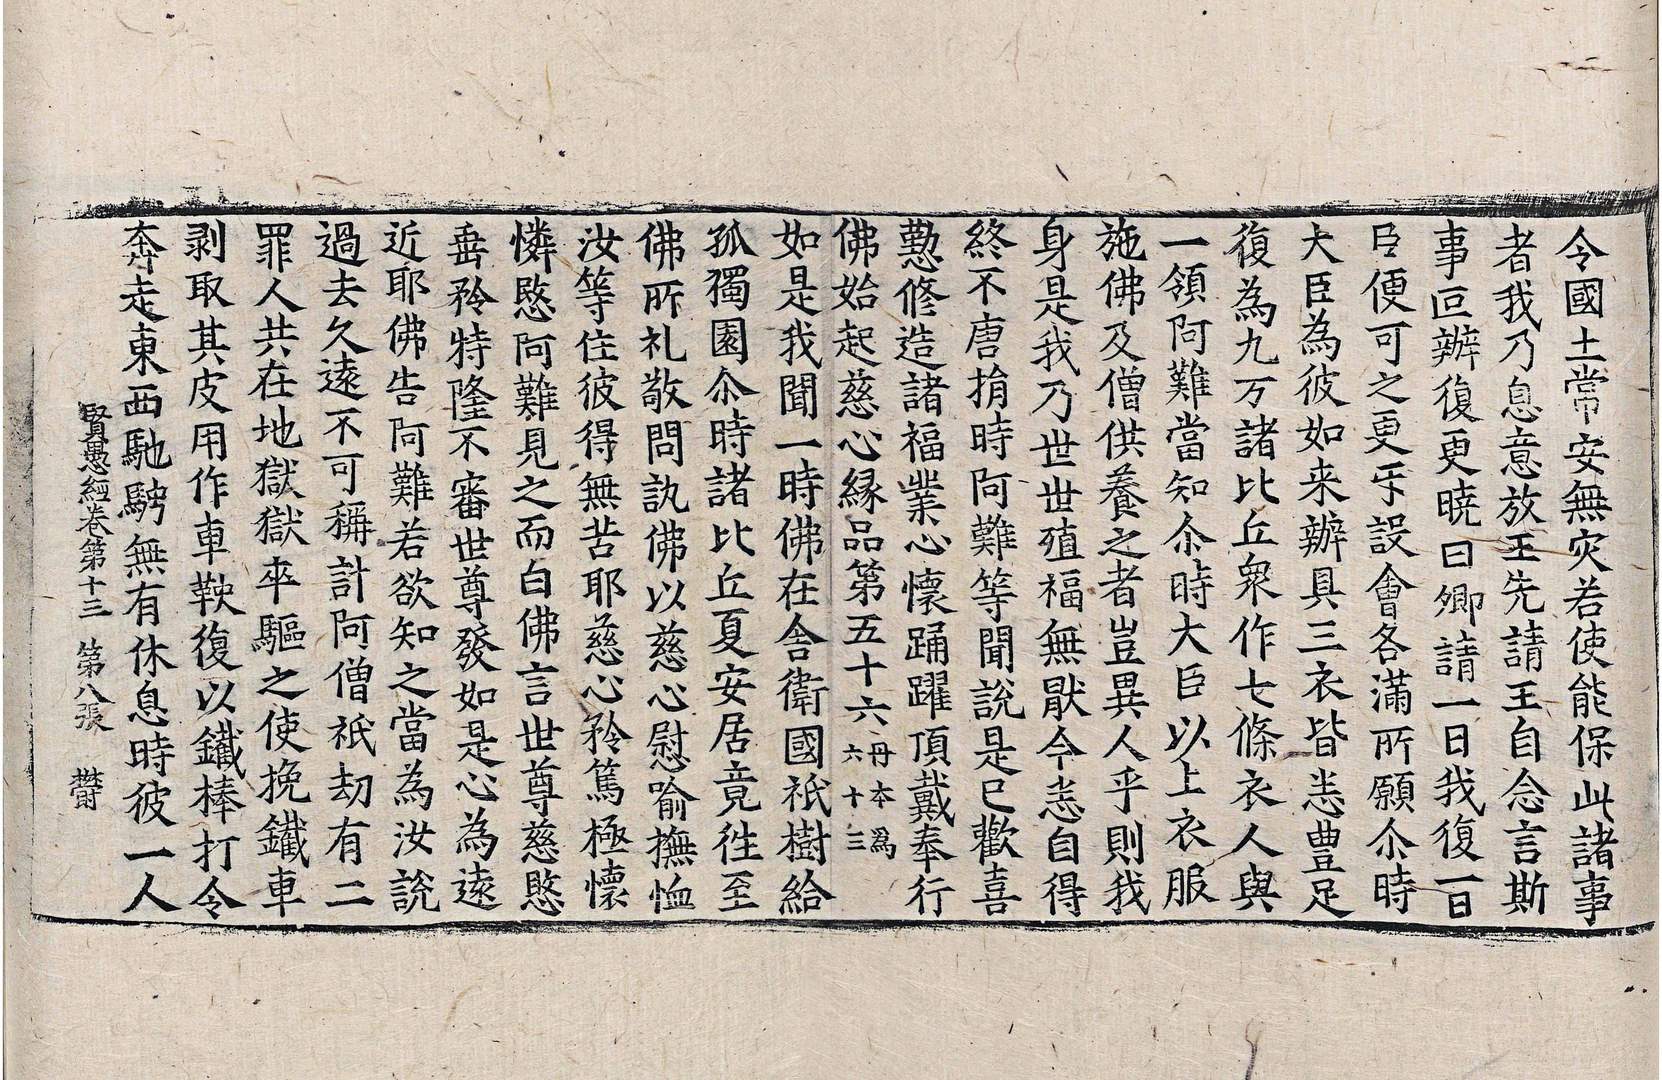 令國土常安無灾若使能保此諸事
者我乃息意放王先請王自念言斯
事叵辦復更曉曰卿請一日我復一日
臣便可之更牙設會各滿所願尒時
大臣為彼如来辦具三衣皆悉豊足
復為九万諸比丘衆作七條衣人與
一領阿難當知尒時大臣以上衣服
施佛及僧供養之者豈異人乎則我
身是我乃世世殖福無猒今悉自得
終不唐捐時阿難等聞說是已歡喜
懃修造諸福業心懷踊躍頂戴奉行
佛始起慈心緣品第五十六丹本爲六十三
如是我聞一時佛在舍衛國祇樹給
孤獨園尒時諸比丘夏安居竟徃至
佛所礼敬問訊佛以慈心慰喻撫恤
汝等住彼得無苦耶慈心矜篤極懷
憐愍阿難見之而白佛言世尊慈愍
垂矜特隆不審世尊發如是心為遠
近耶佛告阿難若欲知之當為汝說
過去久遠不可稱計阿僧祇劫有二
罪人共在地獄獄卒驅之使挽鐵車
剥取其皮用作車鞅復以鐵棒打令
奔走東西馳騁無有休息時彼一人
賢愚經卷第十三 第八張 欝